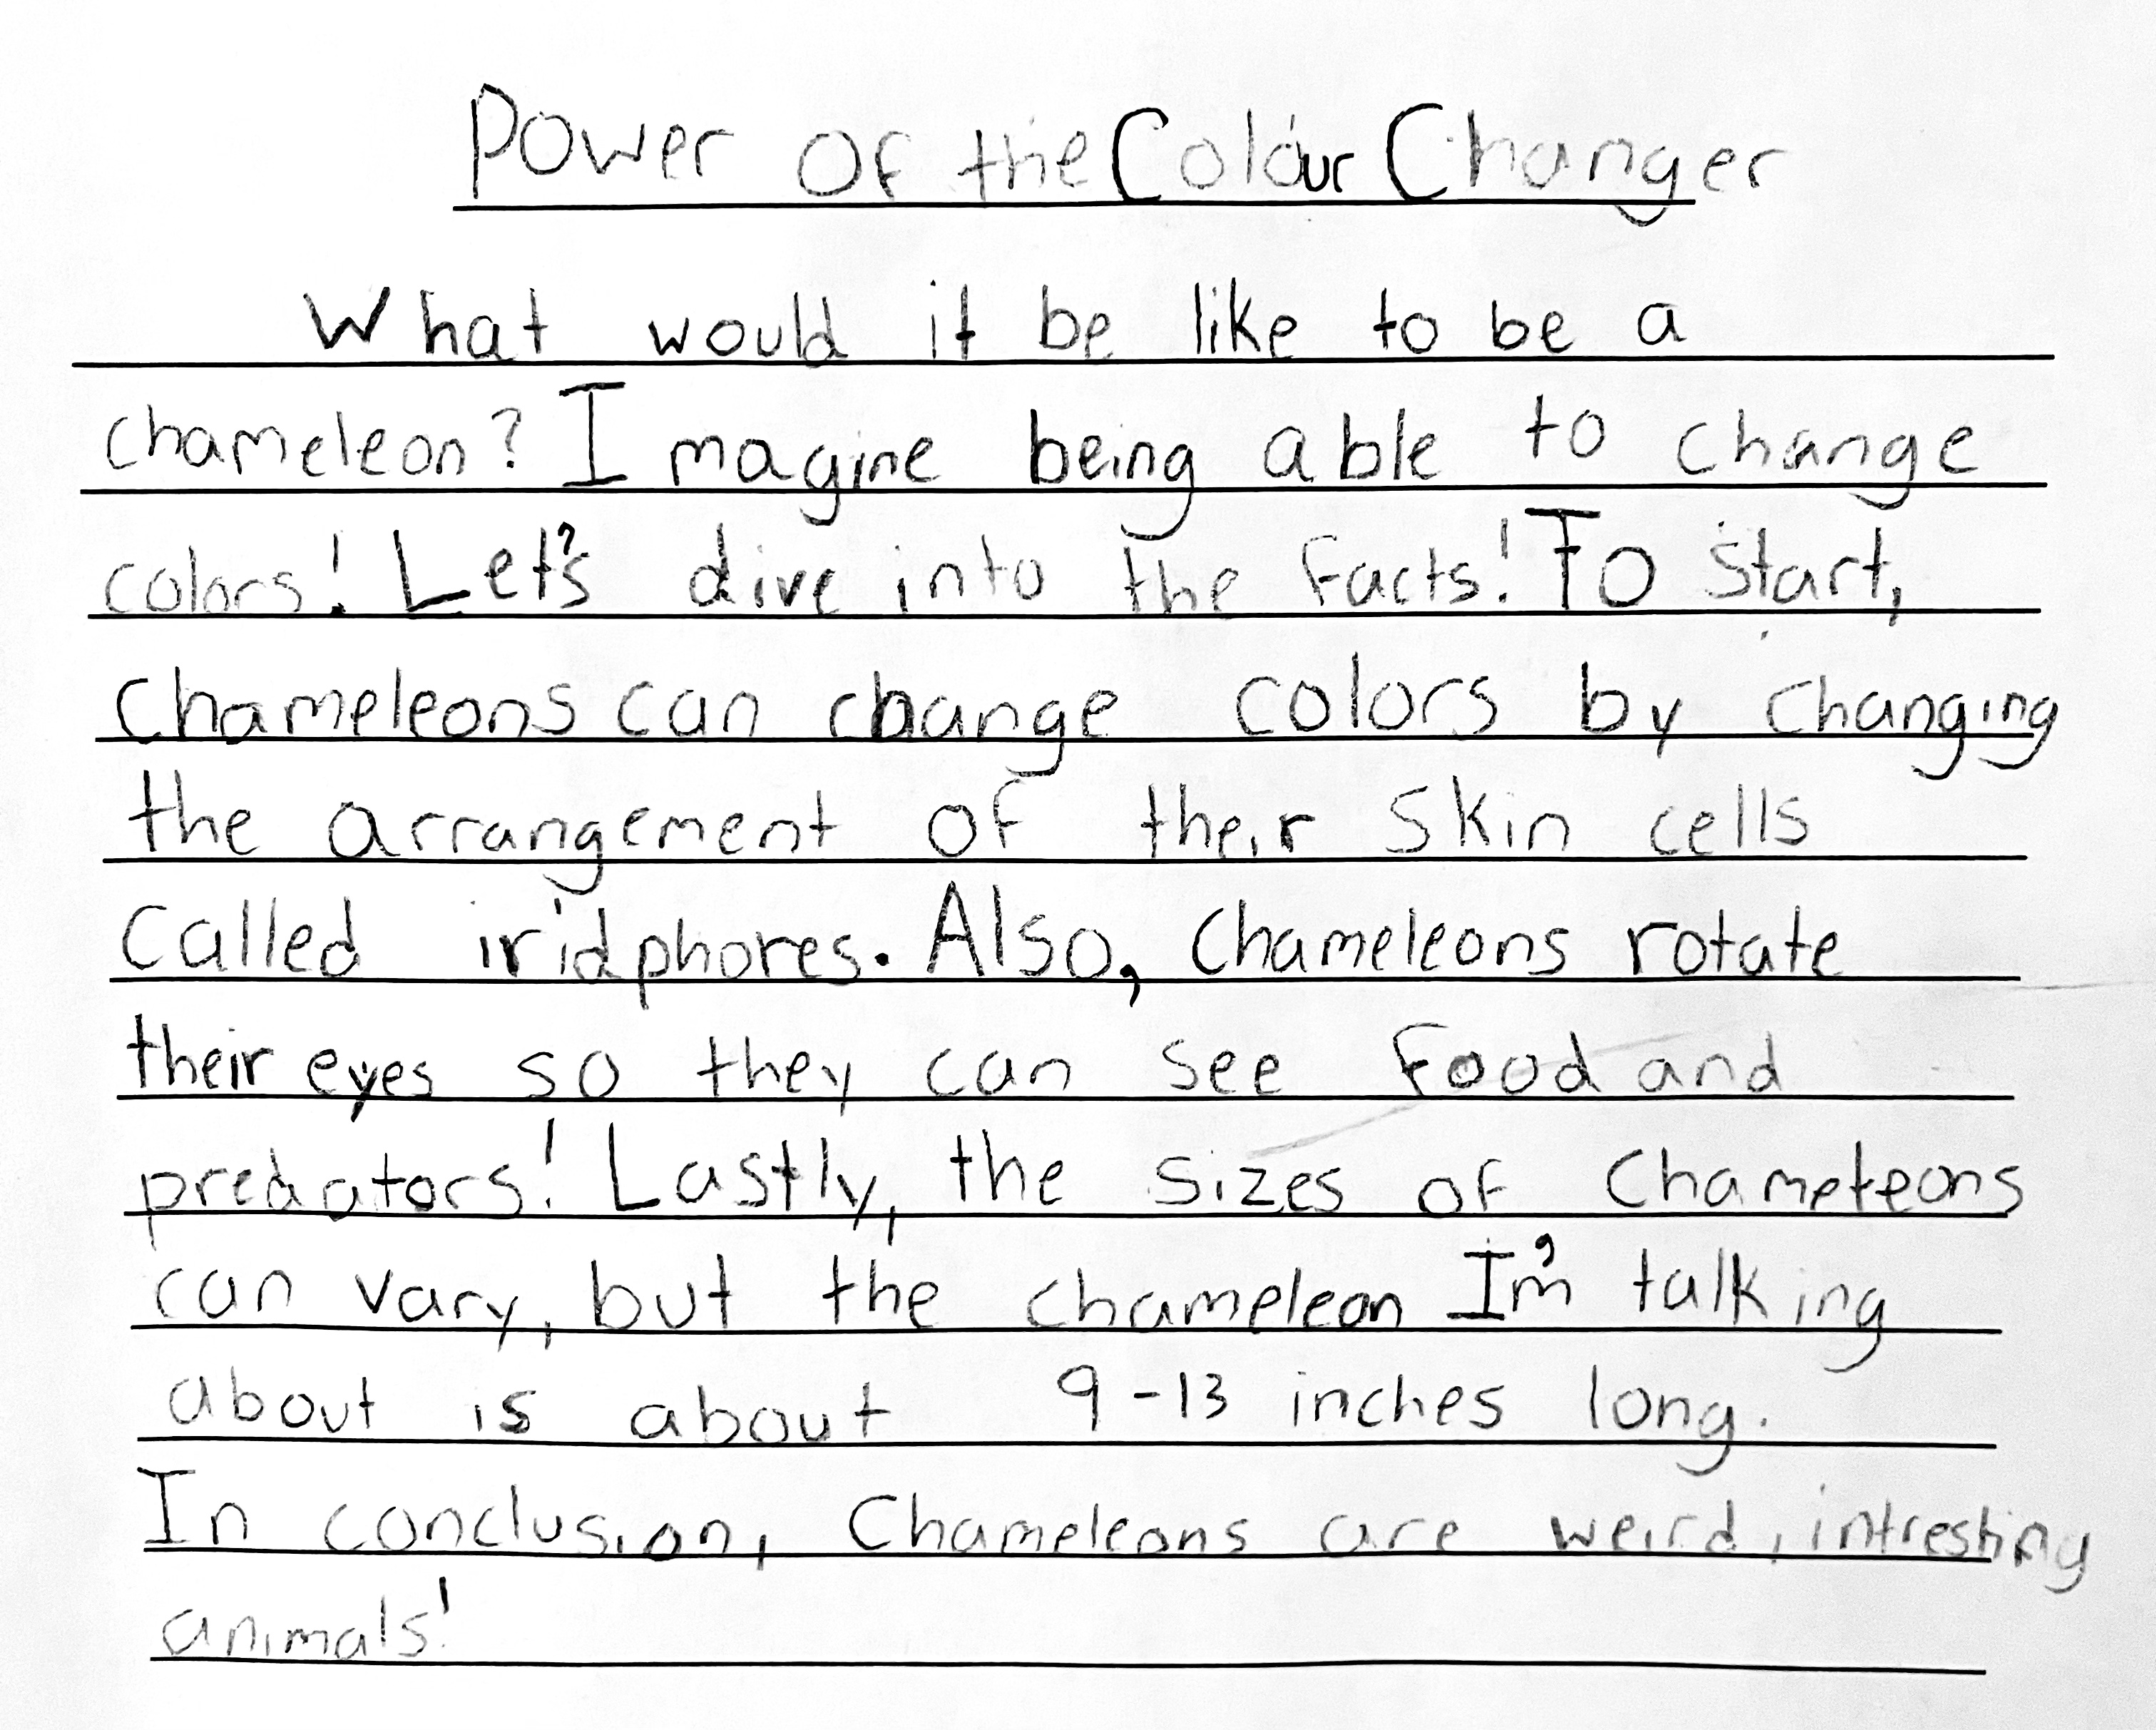 Power Of the Colour Changer
What would it be like to be a
chameleon? Imagine being able to change
colors! Let's dive into the facts! To start,
chameleons can change colors by changing
the arrangement of their skin cells
called iridphores. Also, chameleons rotate
their eyes so they can see food and
predators! Lastly, the sizes of chameleons
can vary, but the chameleon I'm talking
about is about 9-13 inches long.
In conclusion, chameleons are weird, intresting
animals!